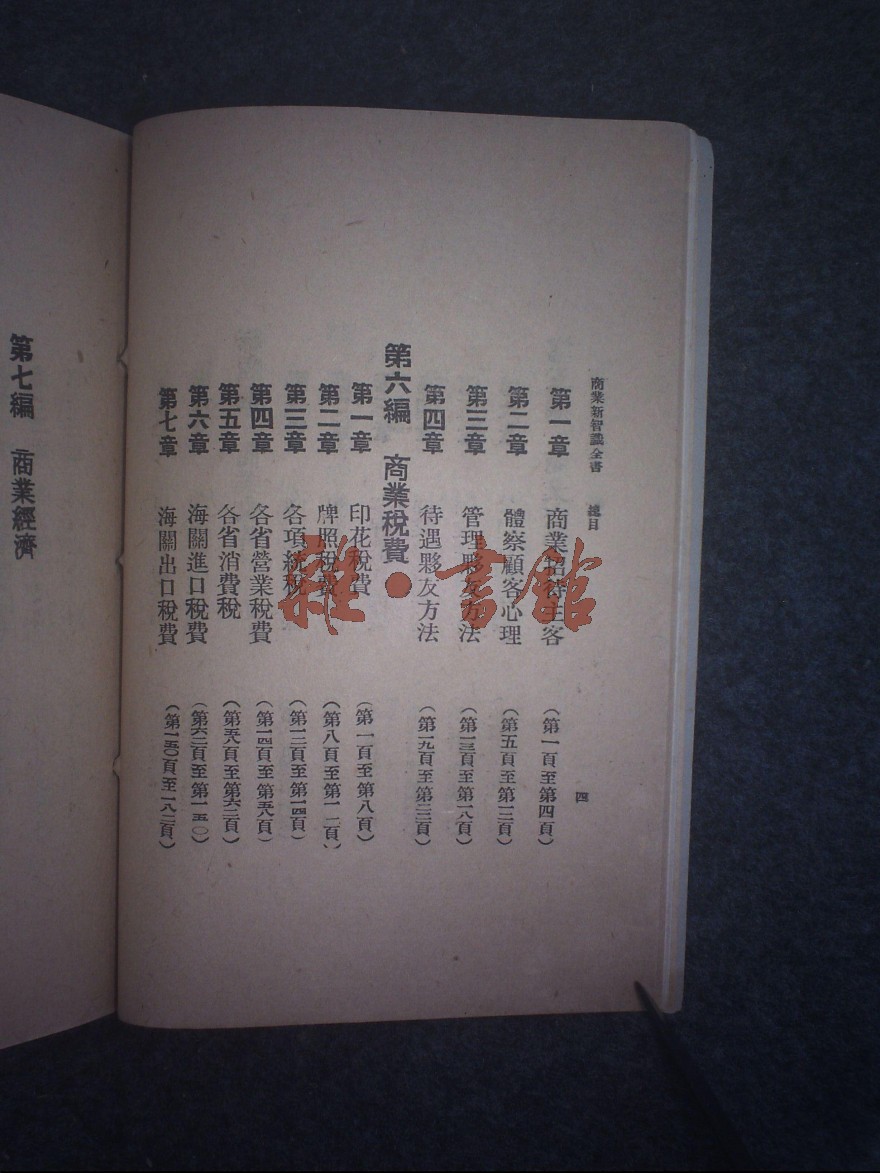 商業新智識全書 總目 四
第一章 商業招待主客 (第一頁至第四頁)
第二章 體察顧客心理 (第五頁至第一二頁)
第三章 管理夥友方法 (第一三頁至第一八頁)
第四章 待遇夥友方法 (第一九頁至第二三頁)
第六編 商業稅費
第一章 印花稅費 (第一頁至第八頁)
第二章 牌照稅費 (第八頁至第一二頁)
第三章 各項統稅 (第一二頁至第一四頁)
第四章 各省營業稅費 (第一四頁至第五八頁)
第五章 各省消費稅 (第五八頁至第六二頁)
第六章 海關進口稅費 (第六二頁至第一五〇)
第七章 海關出口稅費 (第一五〇頁至一八二頁)
第七編 商業經濟
雜·書館